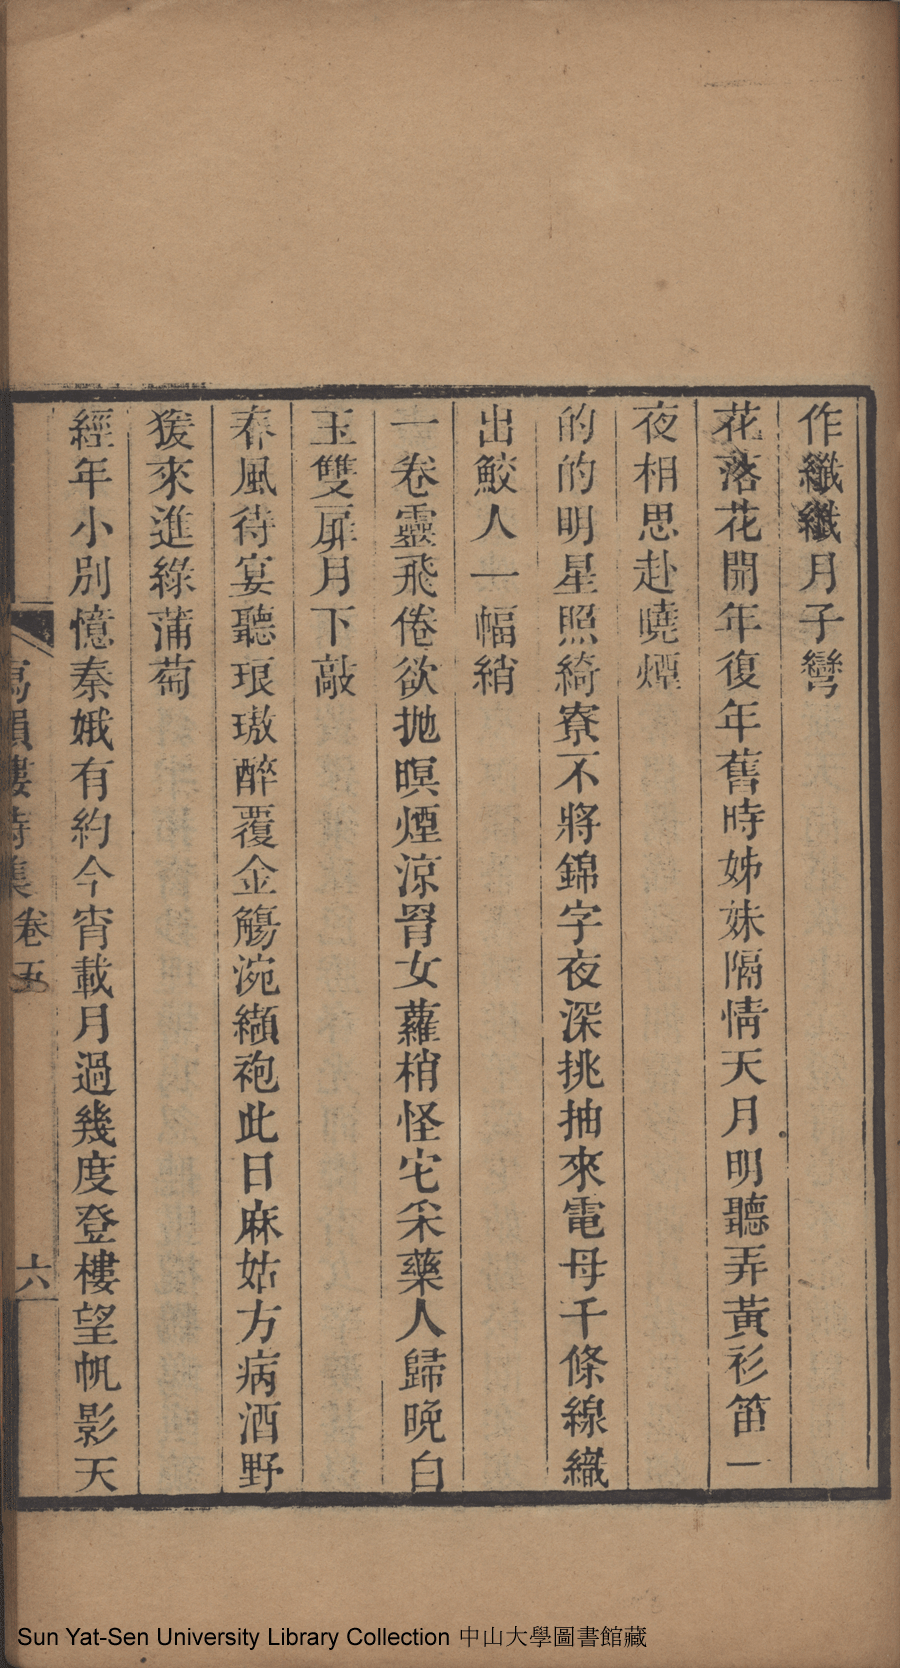 作纖纖月子彎
花落花開年復年舊時姊妹隔情天月明聽弄黃衫笛一
夜相思赴曉煙
的的明星照綺寮不將錦字夜深挑抽來電母千條線織
出鮫人一幅綃
一卷靈飛倦欲拋暝煙涼罥女蘿梢怪它采藥人歸晚白
玉雙扉月下敲
春風待宴聽琅璈醉覆金觴涴纈袍此日麻姑方病酒野
猨來進綠蒲萄
經年小別憶秦娥有約今宵載月過幾度登樓望帆影天
韻樓詩集
卷五
六
Sun Yat-Sen University Library Collection 中山大學圖書館藏